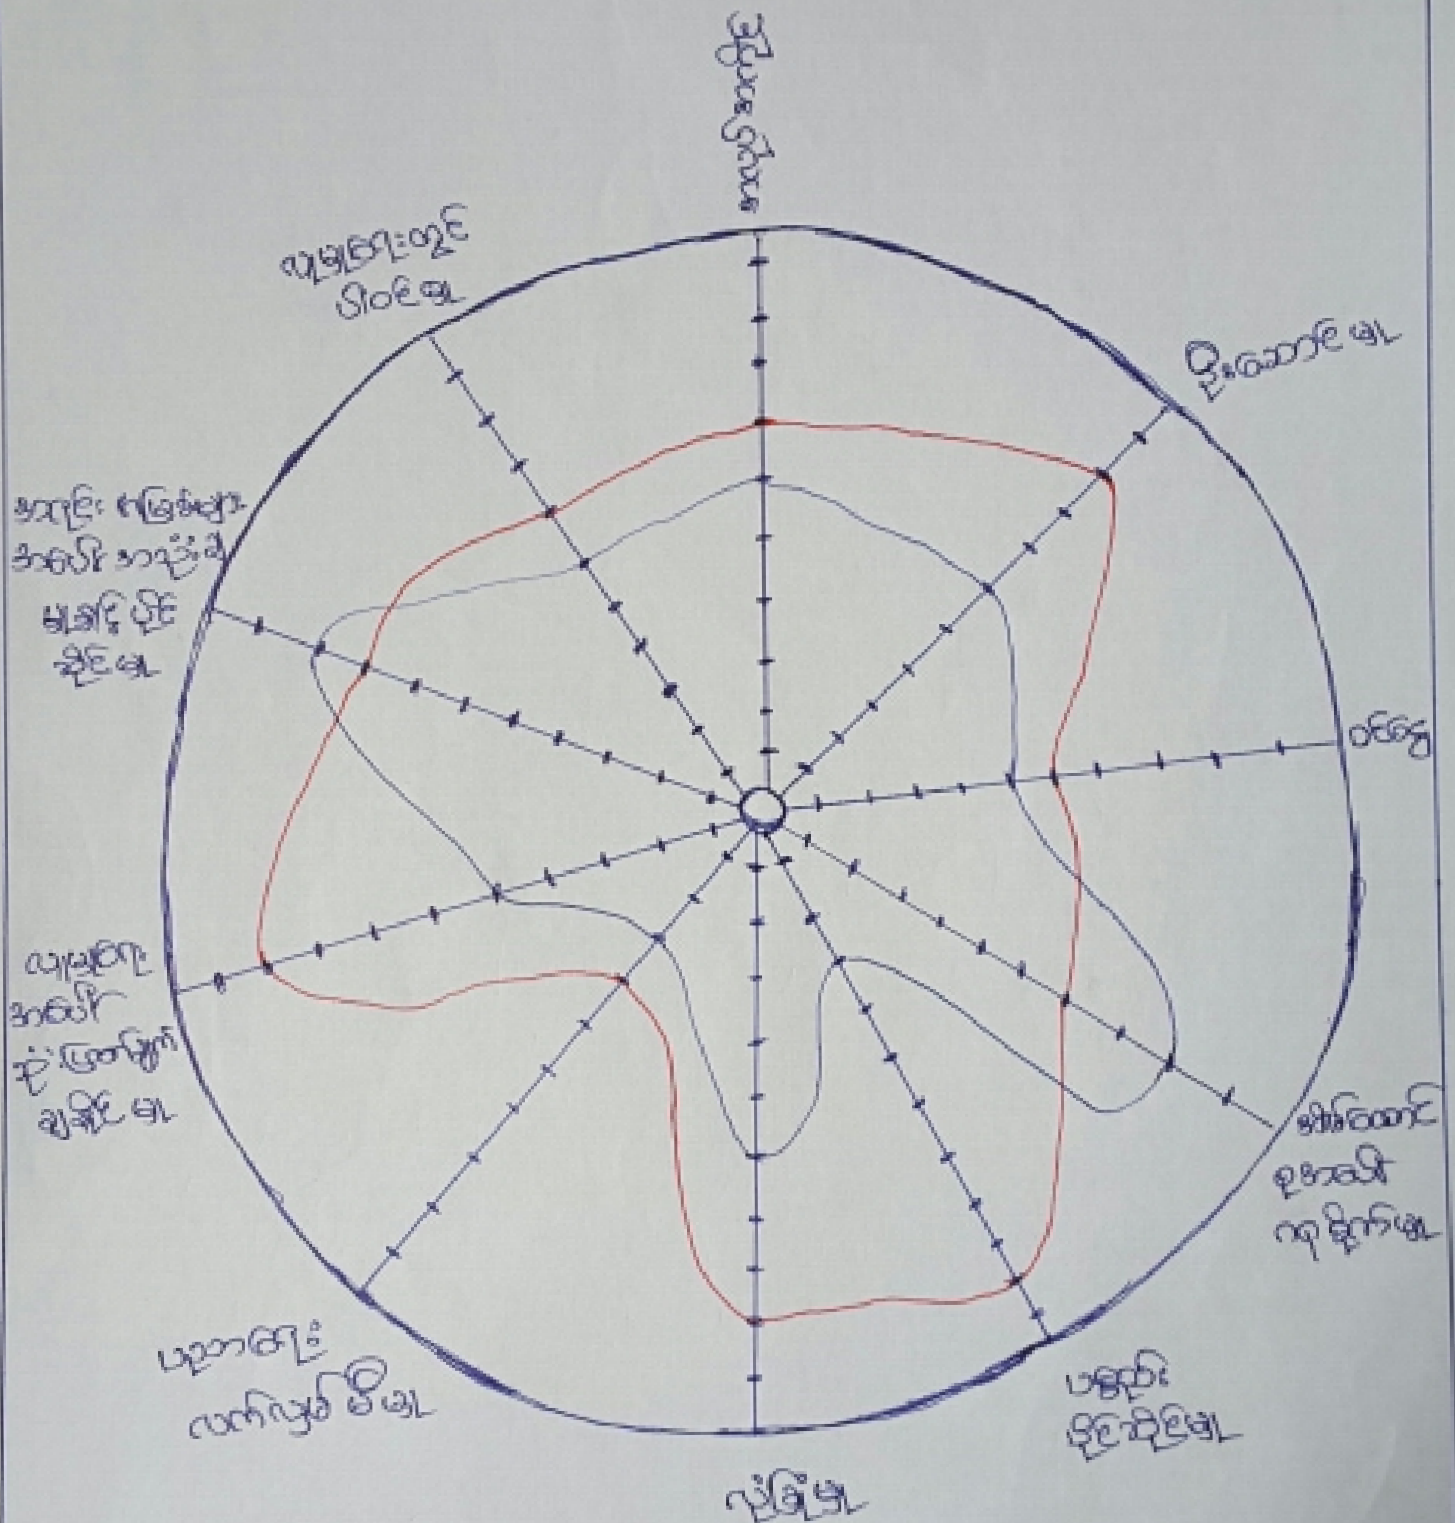 ဦးဆောင်မှု
ဝင်ငွေ
အိမ်ထောင်
စုအပေါ်
ဂရုစိုက်မှု
ပစ္စည်း
ပိုင်ဆိုင်မှု
လုံခြုံမှု
ပညာရေး
လက်လှမ်းမီမှု
လူမှုရေး
အပေါ်
ဆုံးဖြတ်ချက်
ချနိုင်မှု
အရင်းအမြစ်များ
အပေါ် အသုံးချ
မှုနှင့် ပိုင်
ဆိုင်မှု
လူမှုရေးတွင်
ပါဝင်မှု